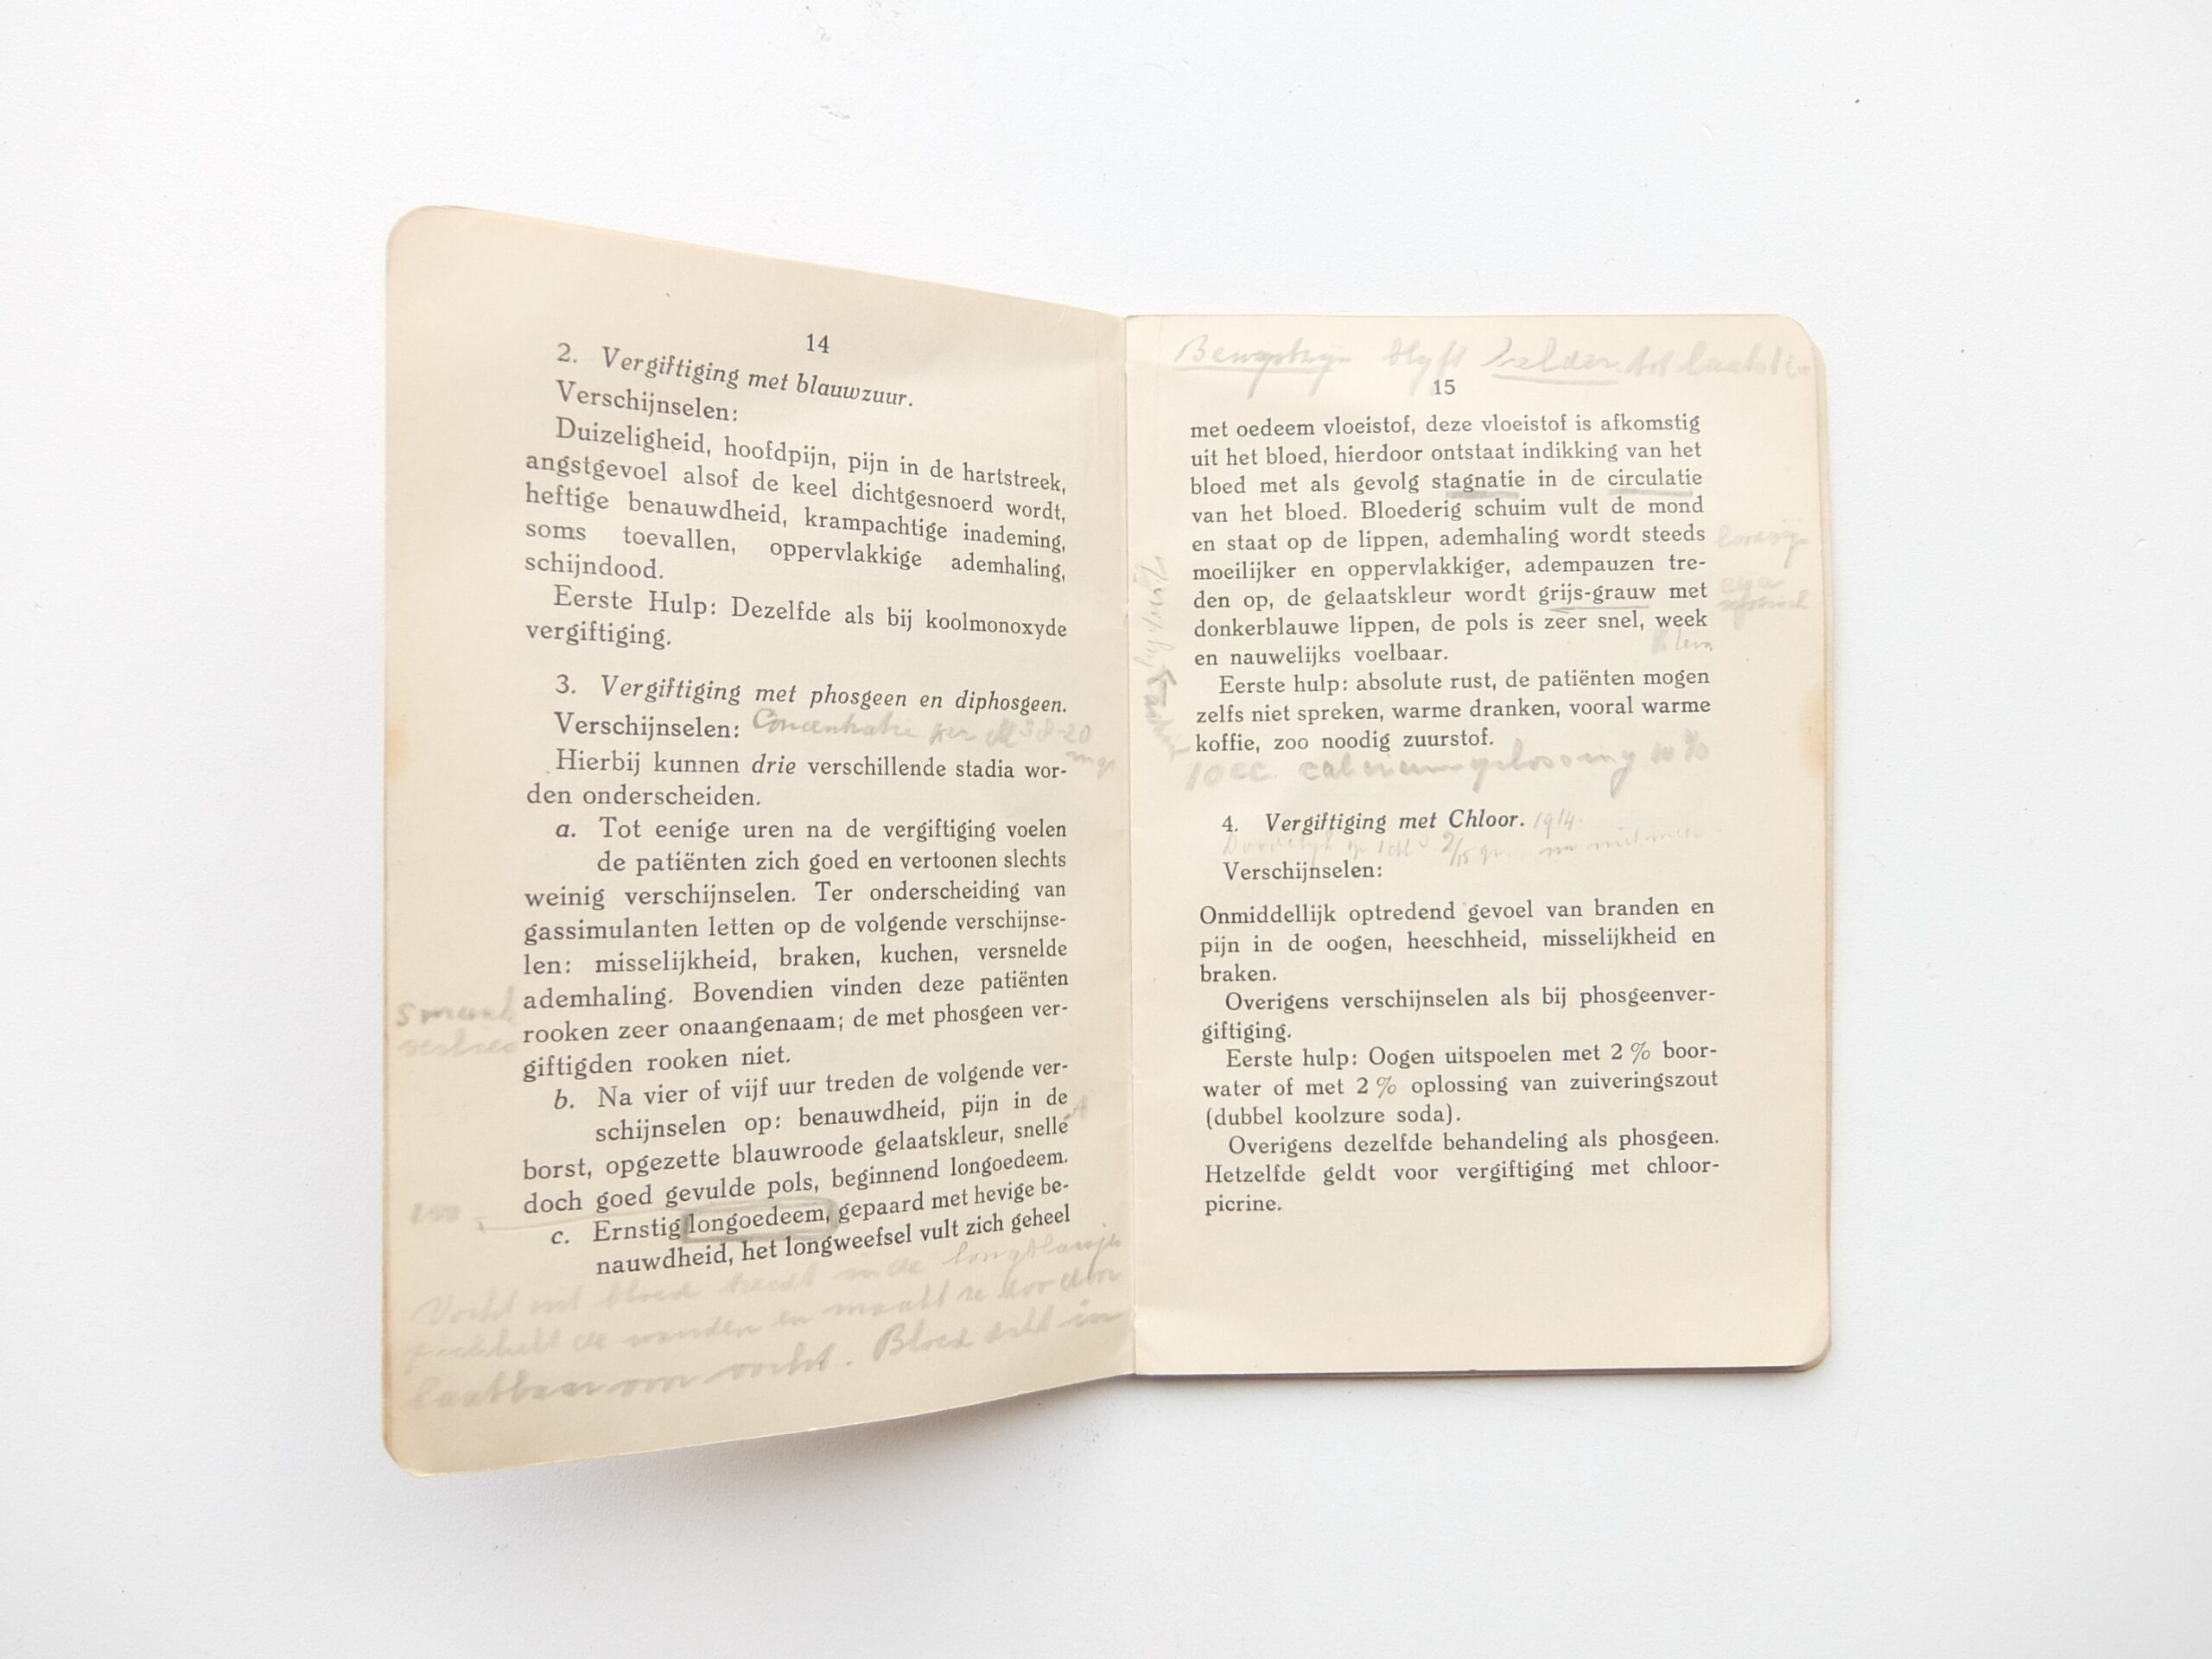 14
2. Vergiftiging met blauwzuur.
Verschijnselen:
Duizeligheid, hoofdpijn, pijn in de hartstreek,
angstgevoel alsof de keel dichtgesnoerd wordt,
heftige benauwdheid, krampachtige inademing,
soms toevallen, oppervlakkige ademhaling,
schijndood.
Eerste Hulp: Dezelfde als bij koolmonoxyde
vergiftiging.
3. Vergiftiging met phosgeen en diphosgeen.
Verschijnselen: Concentratie per M3
Hierbij kunnen drie verschillende stadia wor-
den onderscheiden.
a. Tot eenige uren na de vergiftiging voelen
de patiënten zich goed en vertoonen slechts
weinig verschijnselen. Ter onderscheiding van
gassimulanten letten op de volgende verschijnse-
len: misselijkheid, braken, kuchen, versnelde
ademhaling. Bovendien vinden deze patiënten
rooken zeer onaangenaam; de met phosgeen ver-
giftigden rooken niet.
b. Na vier of vijf uur treden de volgende ver-
schijnselen op: benauwdheid, pijn in de
borst, opgezette blauwroode gelaatskleur, snelle
doch goed gevulde pols, beginnend longoedeem.
c. Ernstig longoedeem, gepaard met hevige be-
nauwdheid, het longweefsel vult zich geheel
Vocht uit bloed treedt in de
de wanden en maakt ze
vocht. Bloed
blyft helder tot laatste
15
met oedeem vloeistof, deze vloeistof is afkomstig
uit het bloed, hierdoor ontstaat indikking van het
bloed met als gevolg stagnatie in de circulatie
van het bloed. Bloederig schuim vult de mond
en staat op de lippen, ademhaling wordt steeds
moeilijker en oppervlakkiger, adempauzen tre-
den op, de gelaatskleur wordt grijs-grauw met
donkerblauwe lippen, de pols is zeer snel, week
en nauwelijks voelbaar.
Eerste hulp: absolute rust, de patiënten mogen
zelfs niet spreken, warme dranken, vooral warme
koffie, zoo noodig zuurstof.
10 cc. 10%
4. Vergiftiging met Chloor. 1914.
Verschijnselen:
Onmiddellijk optredend gevoel van branden en
pijn in de oogen, heeschheid, misselijkheid en
braken.
Overigens verschijnselen als bij phosgeenver-
giftiging.
Eerste hulp: Oogen uitspoelen met 2 % boor-
water of met 2 % oplossing van zuiveringszout
(dubbel koolzure soda).
Overigens dezelfde behandeling als phosgeen.
Hetzelfde geldt voor vergiftiging met chloor-
picrine.